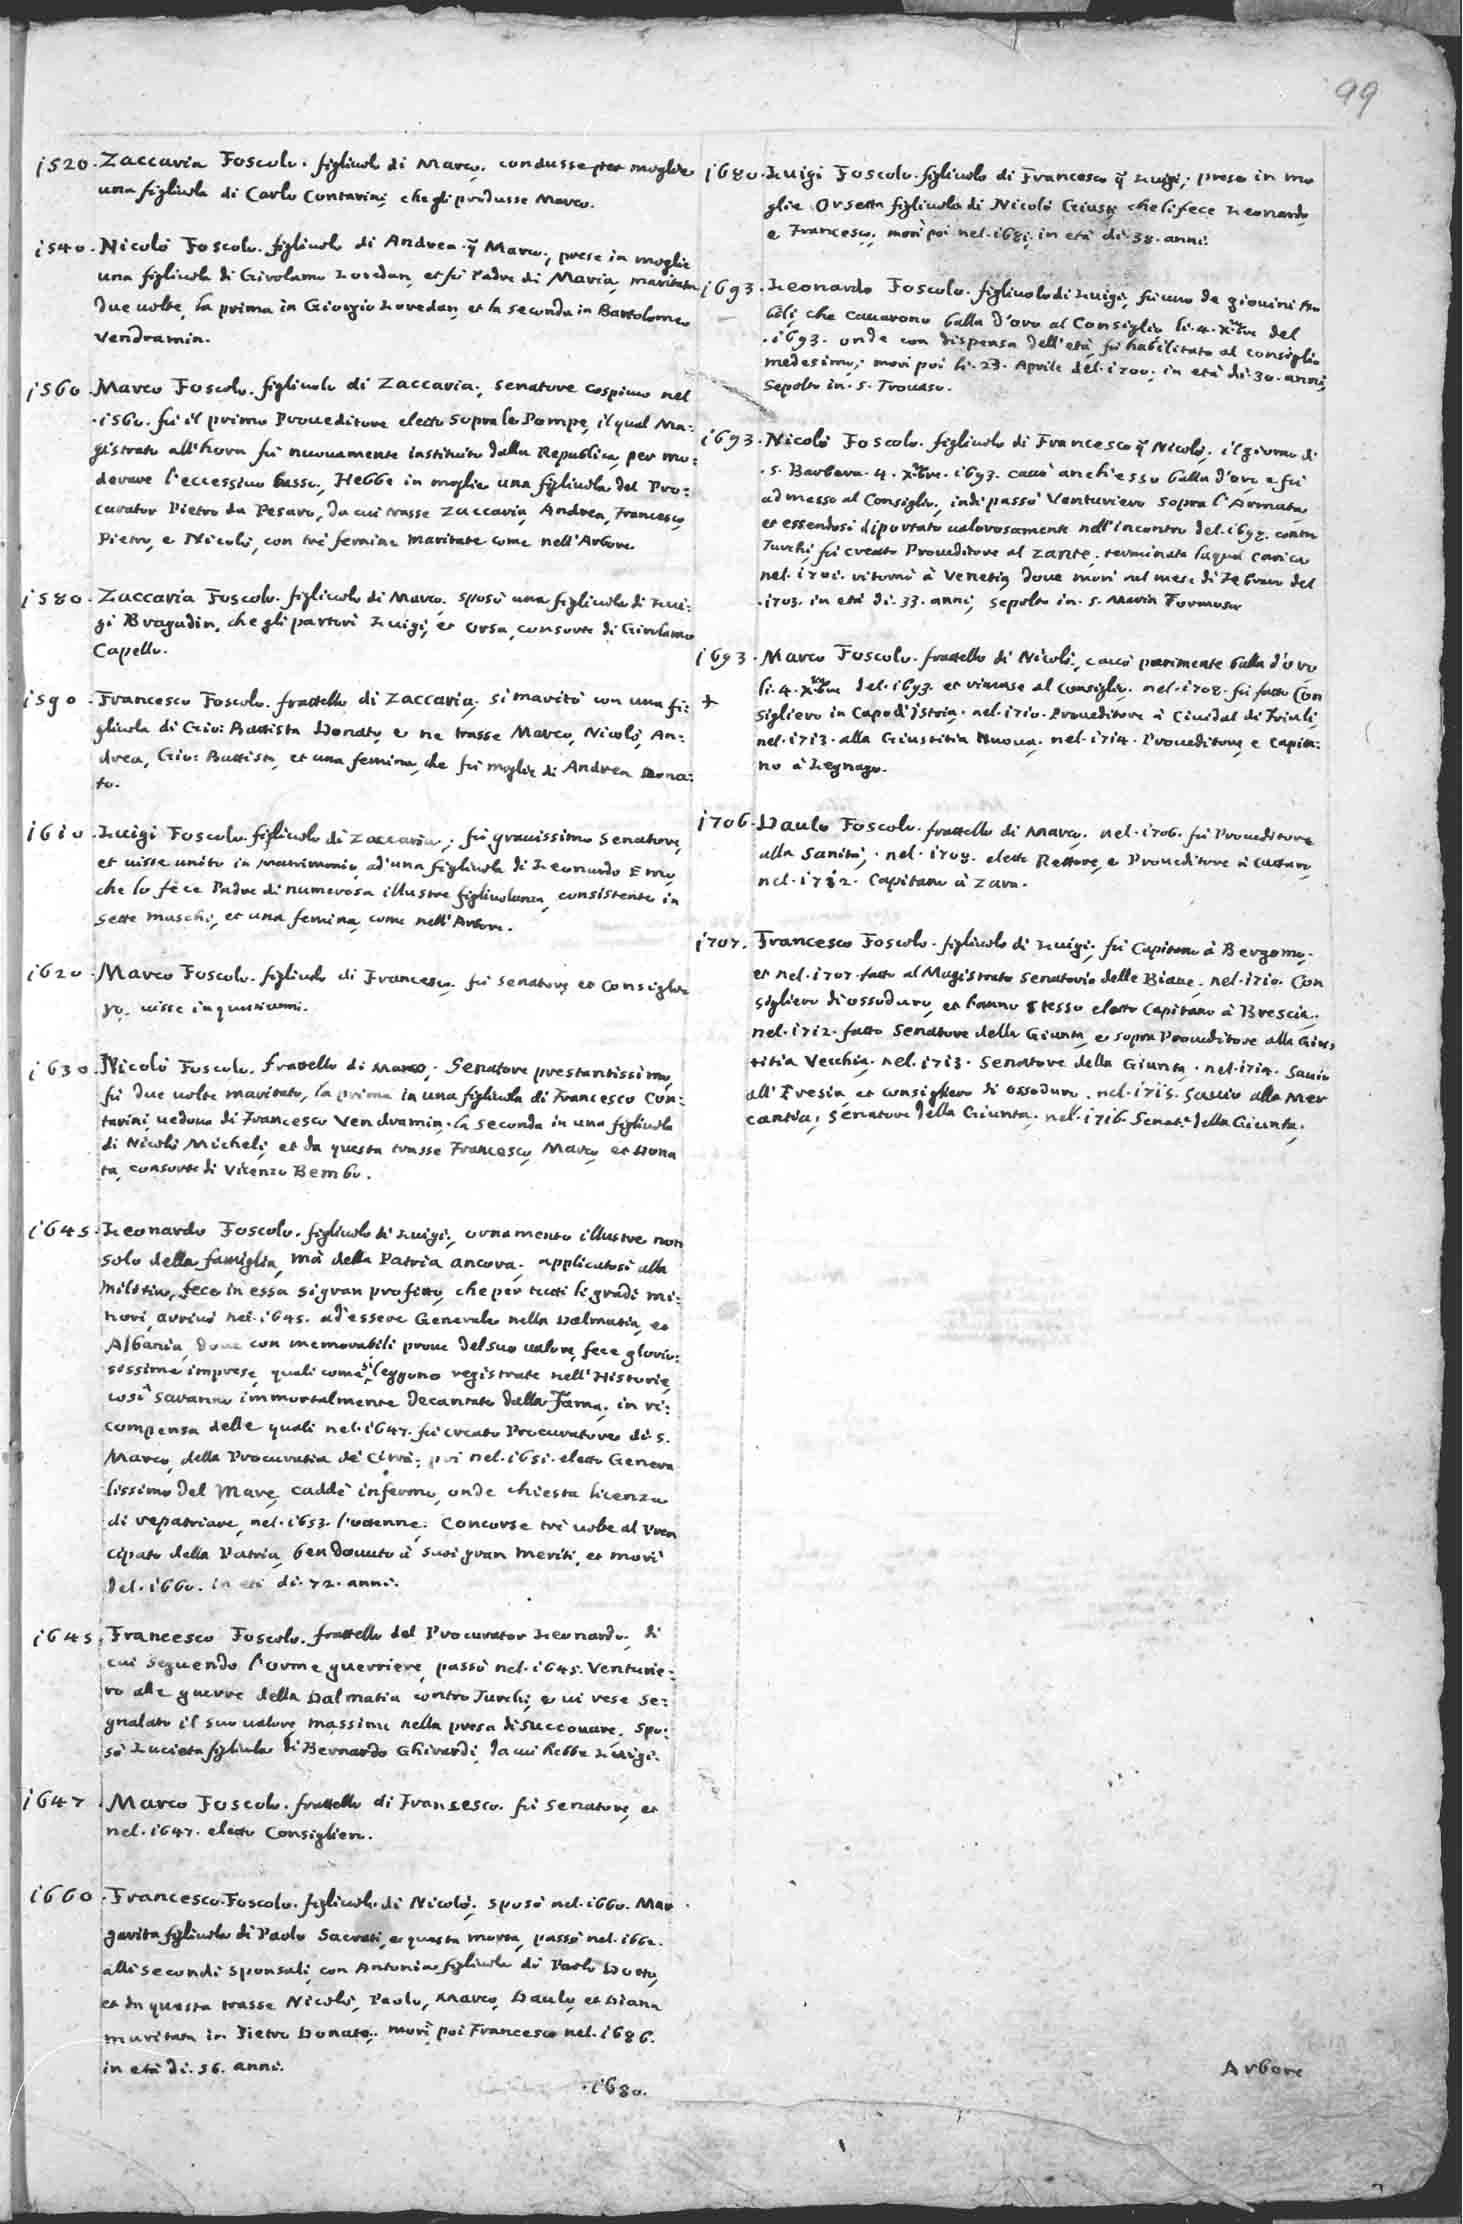 99
1520. Zaccaria Foscolo. figliuolo di Marco, condusse per moglie
una figliuola di Carlo Contarini, che gli produsse Marco.
1540. Nicolò Foscolo. figliuolo di Andrea q Marco, prese in moglie
una figliuola di Girolamo Loredan, et fù Padre di Maria, maritata
due uolte, la prima in Giorgio Loredan, et la seconda in Bartolomeo
Vendramin.
1560. Marco Foscolo. figliuolo di Zaccaria, senatore cospicuo nel
.1560. fù il primo Proueditore eletto sopra le Pompe, il qual Ma:
gistrato all'hora fù nuouamente instituito dalla Republica, per mo:
derare l'eccessiuo lusso, Hebbe in moglie una figliuola del Pro:
curator Pietro da Pesaro, da cui trasse Zaccaria, Andrea, Francesco,
Pietro, e Nicolò, con trè femine maritate come nell'Arbore.
1580. Zaccaria Foscolo. figliuolo di Marco, sposò una figliuola di Lui:
gi Bragadin, che gli partorì Luigi, et Orsa, consorte di Girolamo
Capello.
1590. Francesco Foscolo. frattello di Zaccaria, si maritò con una fi:
gliuola di Gio: Battista Donato, e ne trasse Marco, Nicolò, An:
drea, Gio: Battista, et una femina, che fù moglie di Andrea Dona:
to.
1610. Luigi Foscolo. figliuolo di Zaccaria, fù grauissimo Senatore,
et uisse unito in matrimonio, ad'una figliuola di Leonardo Emo,
che lo fece Padre di numerosa illustre figliuolanza, consistente in
sette maschi, et una femina, come nell'Arbore.
1620. Marco Foscolo. figliuolo di Francesco, fù senatore, et Consiglie
ro, uisse in questi anni.
1630. Nicolò Foscolo. frattello di Marco, Senatore prestantissimo,
fù due uolte maritato, la prima in una figliuola di Francesco Con:
tarini, uedoua di Francesco Vendramin, la seconda in una figliuola
di Nicolò Micheli, et da questa trasse Francesco, Marco, et Dona
ta, consorte di Vicenzo Bembo.
1645. Leonardo Foscolo. figliuolo di Luigi, ornamento illustre non
solo della famiglia, mà della Patria ancora, applicatosi alla
militia, fece in essa si gran profitto, che per tutti li gradi mi:
nori, arriuò nel.1645. ad'essere Generale nella Dalmatia, et
Albania, doue con memorabili proue del suo ualore, fece glorio:
sissime imprese, quali come si leggono registrate nell'Historie,
così saranno immortalmente decantate dalla Fama, in ri:
compensa delle quali nel.1647. fù creato Procuratore di.S.
Marco, della Procuratia de Citrà, poi nel.1651. eletto Genera
lissimo del Mare, caddè infermo, onde chiesta licenza
di repatriare, nel.1653. l'ottenne. Concorse trè uolte al Pren
cipato della Patria, ben douuto à suoi gran meriti, et morì
del.1660. in età di.72. anni.
1645. Francesco Foscolo. frattello del Procurator Leonardo, di
cui seguendo l'orme guerriere, passò nel.1645. Venturie:
ro alle guerre della Dalmatia contro Turchi, e ui rese se:
gnalato il suo ualore, massime nella presa di Succouare, spo:
sò Lucieta figliuola di Bernardo Ghirardi, da cui hebbe Luigi.
1647. Marco Foscolo. frattello di Fransesco. fù senatore, et
nel.1647. eletto Consigliere.
1660. Francesco Foscolo. figliuolo di Nicolò, sposò nel.1660. Mar
garita figliuola di Paolo Sacrati, e questa morta, passò nel.1662.
alli secondi sponsali, con Antonia figliuola di Paolo Dotto,
et da questa trasse Nicolò, Paolo, Marco, Daulo, et Diana
maritata in Pietro Donato, morì poi Francesco nel.1686.
in età di.56. anni.
.1680.
1680. Luigi Foscolo. figliuolo di Francesco q Luigi, prese in mo
glie Orsetta figliuola di Nicolò Giusti che li fece Leonardo,
e Francesco, morì poi nel.1681. in età di.38. anni.
1693. Leonardo Foscolo. figliuolo di Luigi, fù uno de giouini No
bili, che cauarono balla d'oro al Consiglio li.4.Xbre del
.1693. onde con dispensa dell'età, fù habilitato al consiglio
medesimo, morì poi li.23. Aprile del.1700. in età di.30. anni,
sepolto in.S. Trouaso.
1693. Nicolò Foscolo. figliuolo di Francesco q Nicolò, il giorno di
.S. Barbara.4.Xbre.1693. cauò anch'esso balla d'oro, e fù
admesso al Consiglio, indi passò Venturiero sopra l'Armata,
et essendosi diportato ualorosamente nell'incontro del.1697. contro
Turchi, fù creato Proueditore al Zante, terminata laqual carica
nel.1701. ritornò à Venetia, doue morì nel mese di Febraro del
.1703. in età di.33. anni, sepolto in.S. Maria Formosa.
1693. Marco Foscolo. frattello di Nicolò, cauò parimente balla d'oro
+ li.4.Xbre del.1693. et rimase al consiglio. nel.1708. fù fatto Con
sigliero in Capo d'Istria. nel.1710. Proueditore à Ciuidal di Friuli,
nel.1713. alla Giustitia Nuoua. nel.1714. Proueditore, e Capita:
no à Legnago.
1706. Daulo Foscolo. frattello di Marco, nel.1706. fù Proueditore
alla Sanità, nel.1709. eletto Rettore, e Proueditore à Cattaro,
nel.1712. Capitano à Zara.
1707. Francesco Foscolo. figliuolo di Luigi, fù Capitano à Bergomo,
et nel.1707. fatto al Magistrato senatorio delle Biaue, nel.1710. Con
sigliero di ossoduro, et l'anno stesso eletto Capitano à Brescia,
nel.1712. fatto Senatore della Giunta, e sopra Proueditore alla Gius
titia Vecchia, nel.1713. Senatore della Giunta, nel.1714. Sauio
all'Eresia, et consigliero di ossoduro, nel.1715. Sauio alla Mer
cantia, senatore della Giunta, nel.1716. Senat.e della Giunta.
Arbore